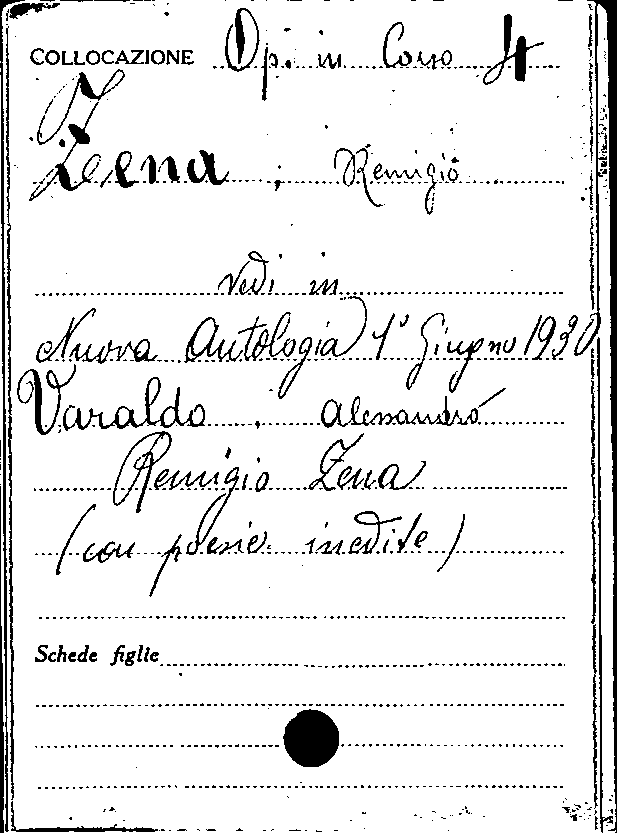 COLLOCAZIONE Op. in Corso 4
Zena, Remigio
vedi in
Nuova Antologia 1° Giugno 1930
Varaldo, Alessandro
Remigio Zena
(con poesie inedite)
Schede figlie